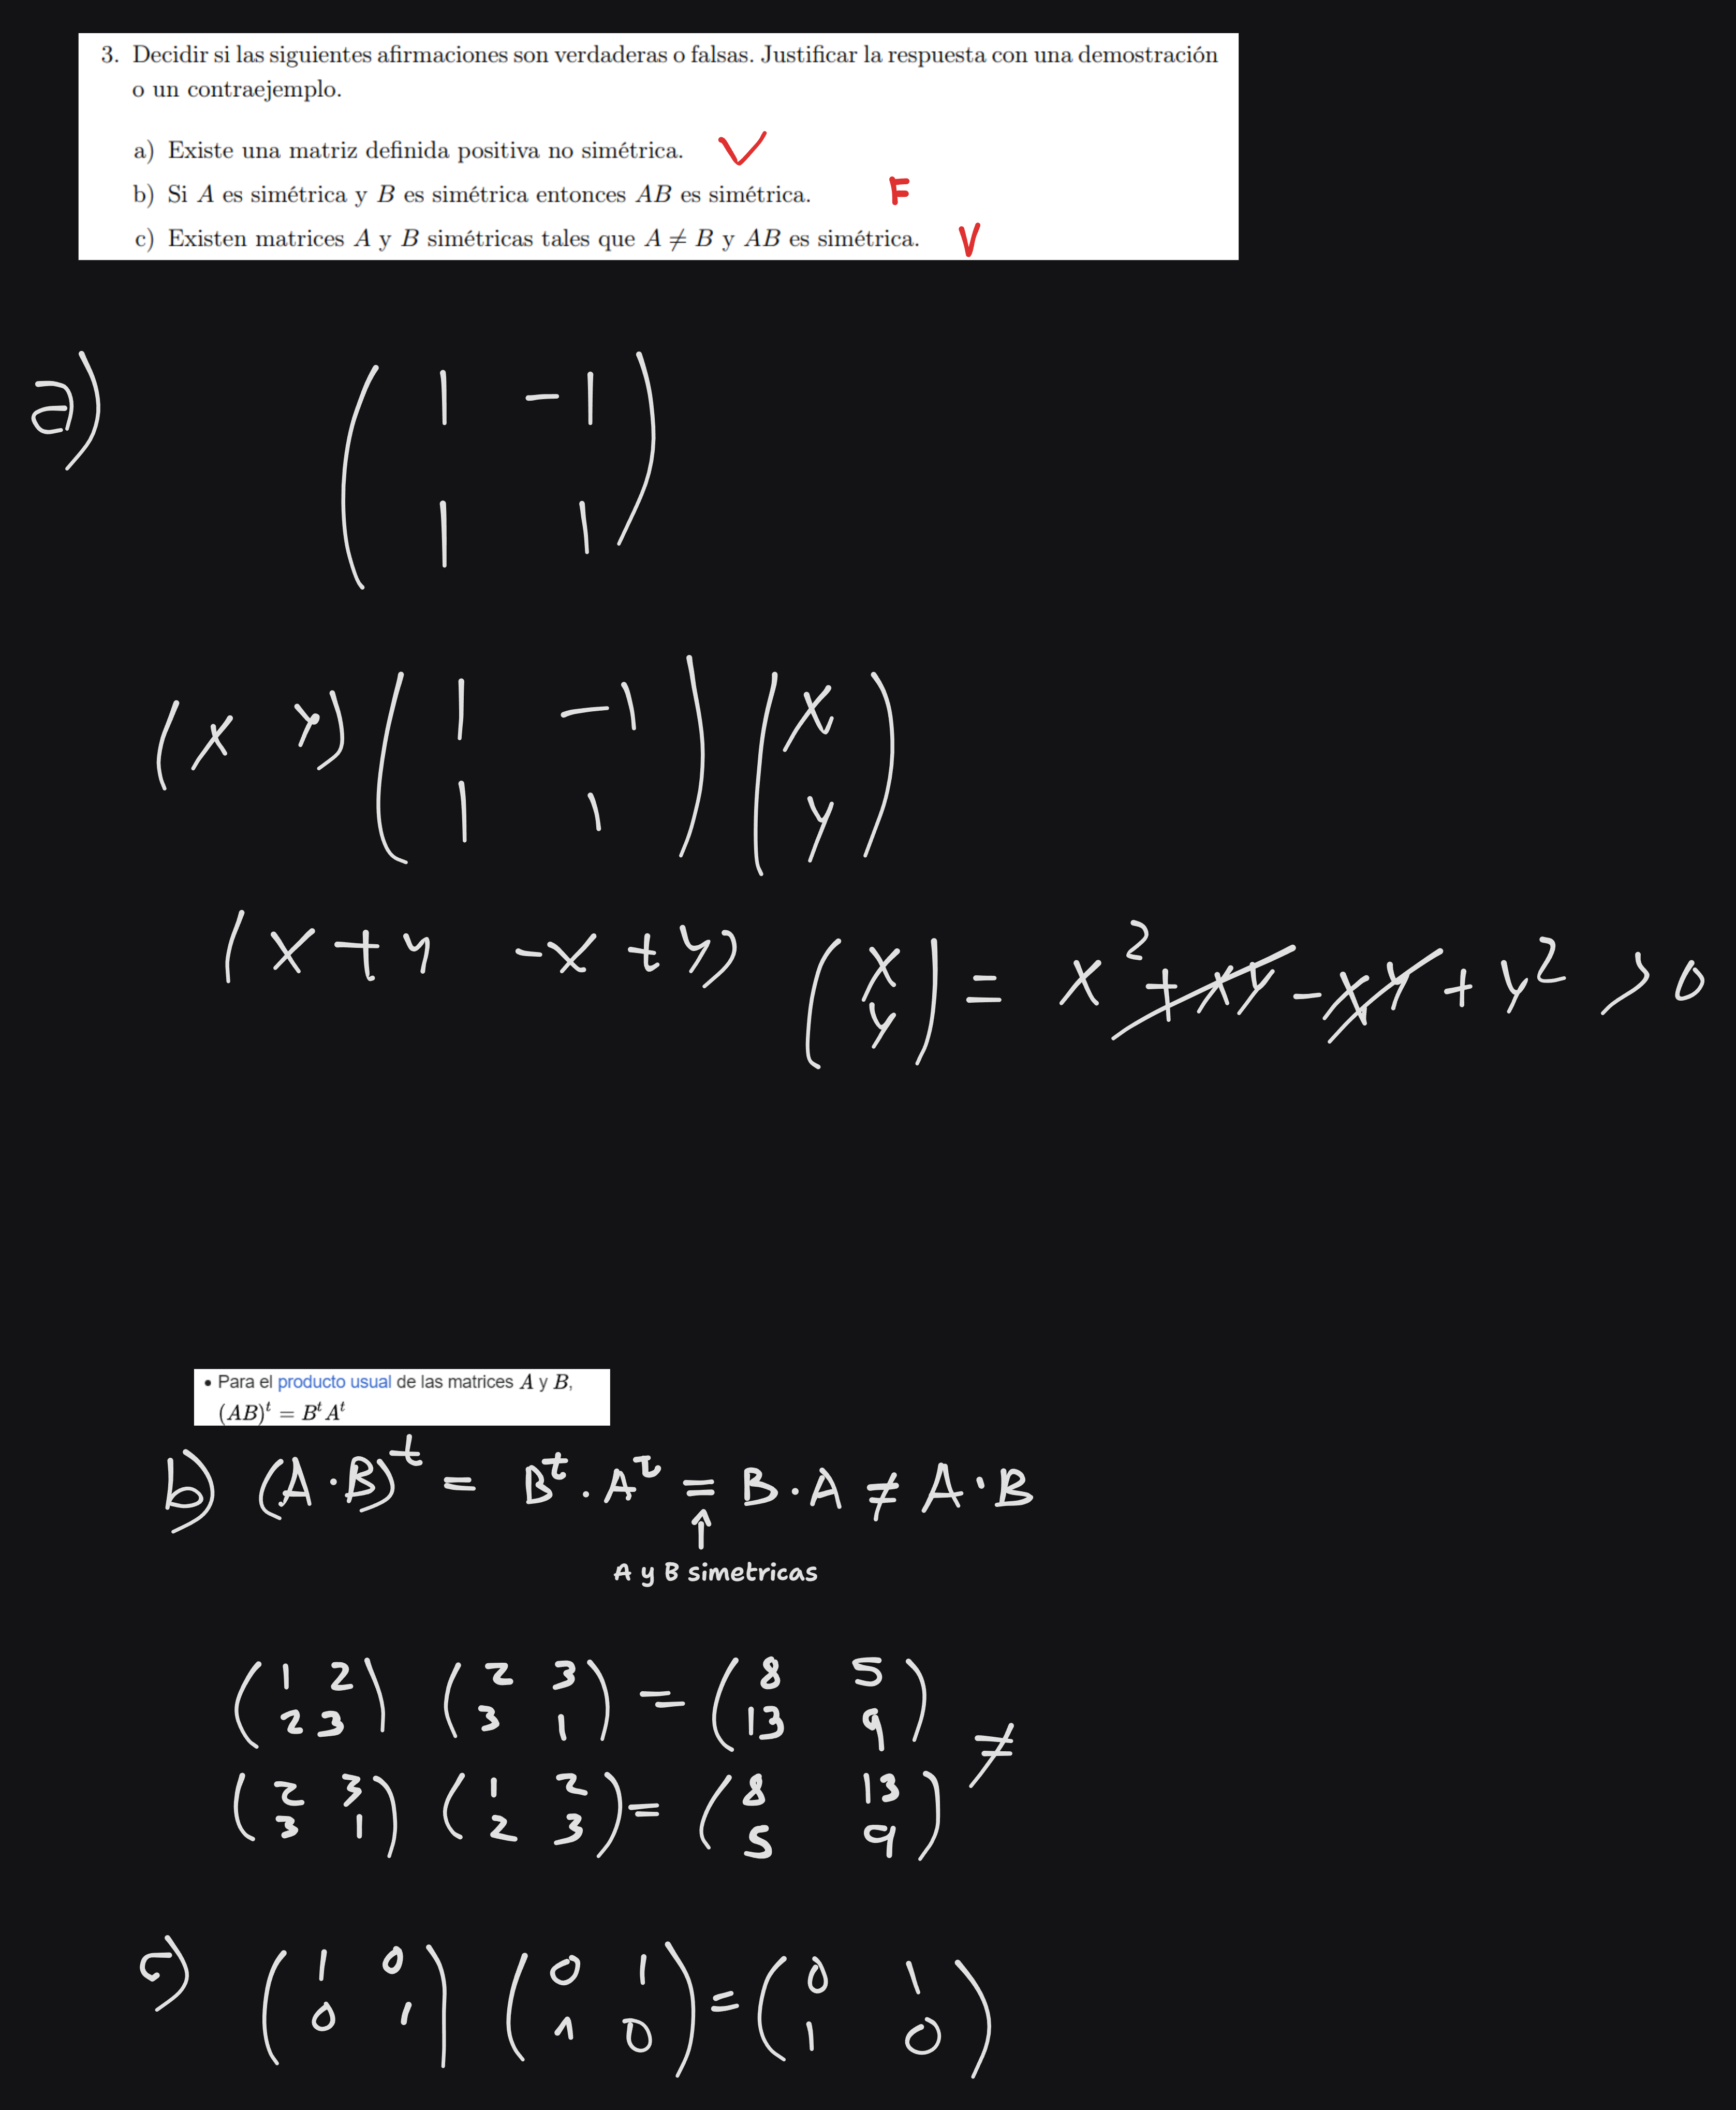 3. Decidir si las siguientes afirmaciones son verdaderas o falsas. Justificar la respuesta con una demostración
o un contraejemplo.
a) Existe una matriz definida positiva no simétrica. V
b) Si A es simétrica y B es simétrica entonces AB es simétrica. F
c) Existen matrices A y B simétricas tales que A ≠ B y AB es simétrica. V
a) ( 1 -1
1 1 )
(x y) ( 1 -1 ) ( x
1 1 y )
(x+y -x+y) ( x
y ) = x² + xy - xy + y² > 0
• Para el producto usual de las matrices A y B,
(AB)ᵗ = BᵗAᵗ
b) (A·B)ᵗ = Bᵗ·Aᵗ = B·A ≠ A·B
↑
A y B simetricas
( 1 2 ) ( 2 3 ) = ( 8 5 )
( 2 3 ) ( 3 1 ) ( 13 9 )
≠
( 2 3 ) ( 1 2 ) = ( 8 13 )
( 3 1 ) ( 2 3 ) ( 5 9 )
c) ( 1 0 ) ( 0 1 ) = ( 0 1 )
( 0 1 ) ( 1 0 ) ( 1 0 )